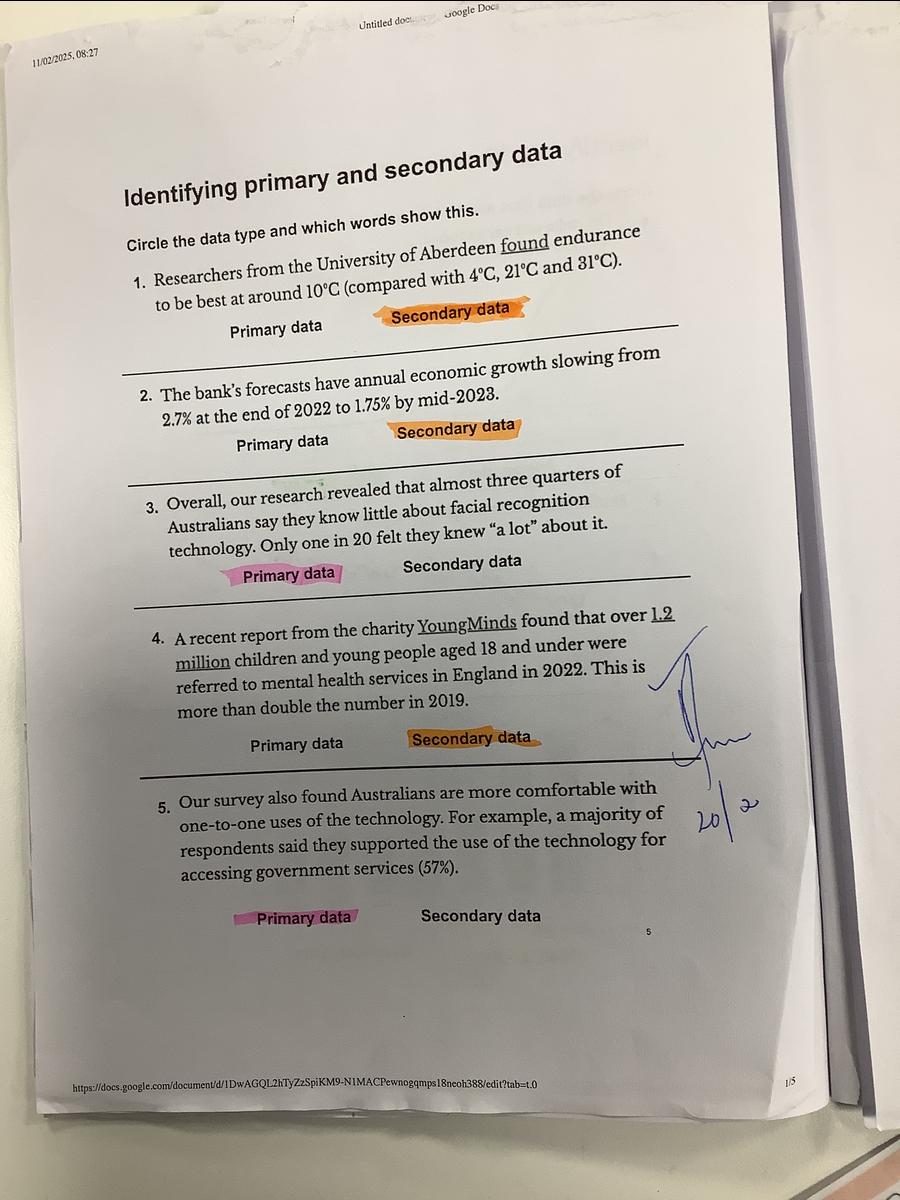 Untitled doc
Google Docs
11/02/2025, 08:27
Identifying primary and secondary data
Circle the data type and which words show this.
1. Researchers from the University of Aberdeen found endurance
to be best at around 10°C (compared with 4°C, 21°C and 31°C).
Primary data Secondary data
2. The bank's forecasts have annual economic growth slowing from
2.7% at the end of 2022 to 1.75% by mid-2023.
Primary data Secondary data
3. Overall, our research revealed that almost three quarters of
Australians say they know little about facial recognition
technology. Only one in 20 felt they knew “a lot” about it.
Primary data Secondary data
4. A recent report from the charity YoungMinds found that over 1.2
million children and young people aged 18 and under were
referred to mental health services in England in 2022. This is
more than double the number in 2019.
Primary data Secondary data
5. Our survey also found Australians are more comfortable with
one-to-one uses of the technology. For example, a majority of
respondents said they supported the use of the technology for
accessing government services (57%).
20/2
Primary data Secondary data
5
https://docs.google.com/document/d/1DwAGQL2hTyZzSpiKM9-N1MACPewnogqmps18neoh388/edit?tab=t.0
1/5